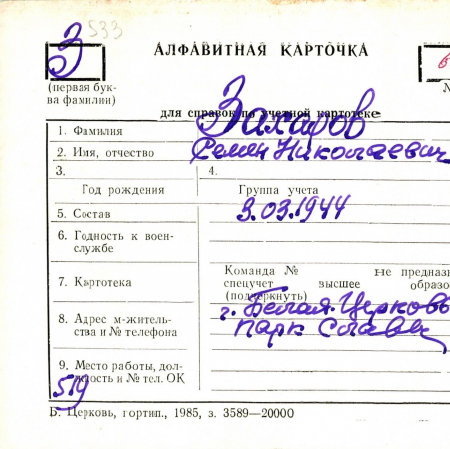 З 533
АЛФАВИТНАЯ КАРТОЧКА
(первая бук-
ва фамилии)
для справок по учетной картотеке
1. Фамилия Захаров
2. Имя, отчество Семен Николаевич
3. 4.
Год рождения Группа учета
5. Состав 3.03.1944
6. Годность к воен-
службе
7. Картотека
Команда № не предназ
спецучет высшее образо
(подчеркнуть)
г. Белая-Церковь
8. Адрес м-житель-
ства и № телефона
Парк Славы
9. Место работы, дол-
жность и № тел. ОК
519
Б. Церковь, гортип., 1985, з. 3589—20000